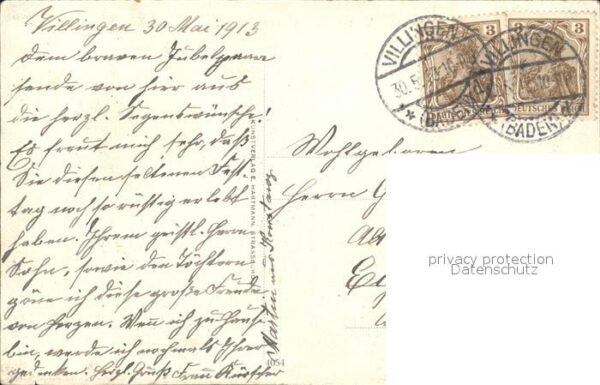 Villingen 30 Mai 1913
Dem braven Jubelpaar
sende von hier aus
die herzl. Segenswünsche!
Es freut mich sehr, daß
Sie diesen seltenen Fest-
tag noch so rüstig erlebt
haben. Ihrem geistl. Herrn
Sohn, sowie den Töchtern
göne ich diese große Freude
von Herzen. Wenn ich zu Hause
bin, werde ich nochmals Ihrer
gedenken. Herzl. Gruß Frau
Martin aus Konstanz
KUNSTVERLAG E. HARTMANN, STRASSBURG
4054
VILLINGEN
30.5.
(BADEN)
3
DEUTSCHES REICH
VILLINGEN
(BADEN)
3
DEUTSCHES REICH
Wohlgeboren
Herrn G
privacy protection
Datenschutz